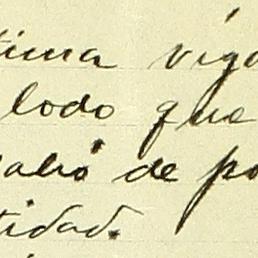 tima viga
lodo que
salió de po
tidad.